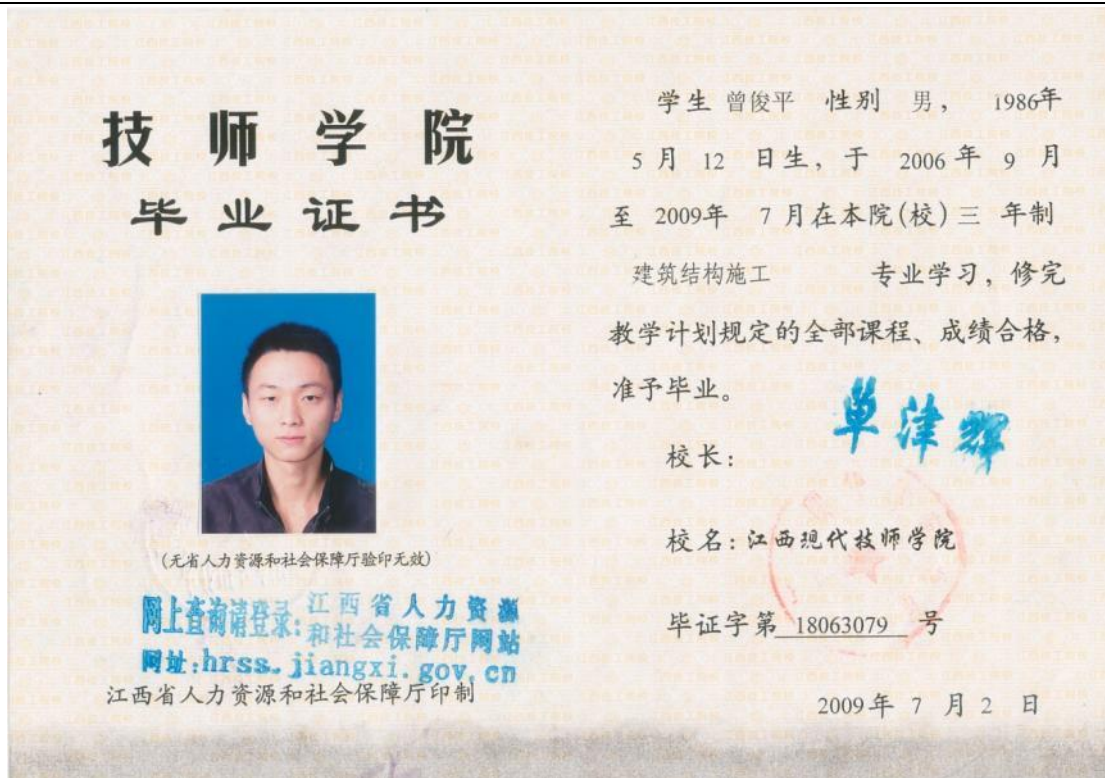 技师学院
毕业证书
(无省人力资源和社会保障厅验印无效)
网上查询请登录:江西省人力资源
和社会保障厅网站
网址:hrss.jiangxi.gov.cn
江西省人力资源和社会保障厅印制
学生 曾俊平 性别 男, 1986年
5 月 12 日生, 于 2006 年 9 月
至 2009年 7 月在本院(校)三 年制
建筑结构施工 专业学习, 修完
教学计划规定的全部课程、成绩合格,
准予毕业。
单津辉
校长:
校名:江西现代技师学院
毕证字第 18063079 号
2009 年 7 月 2 日